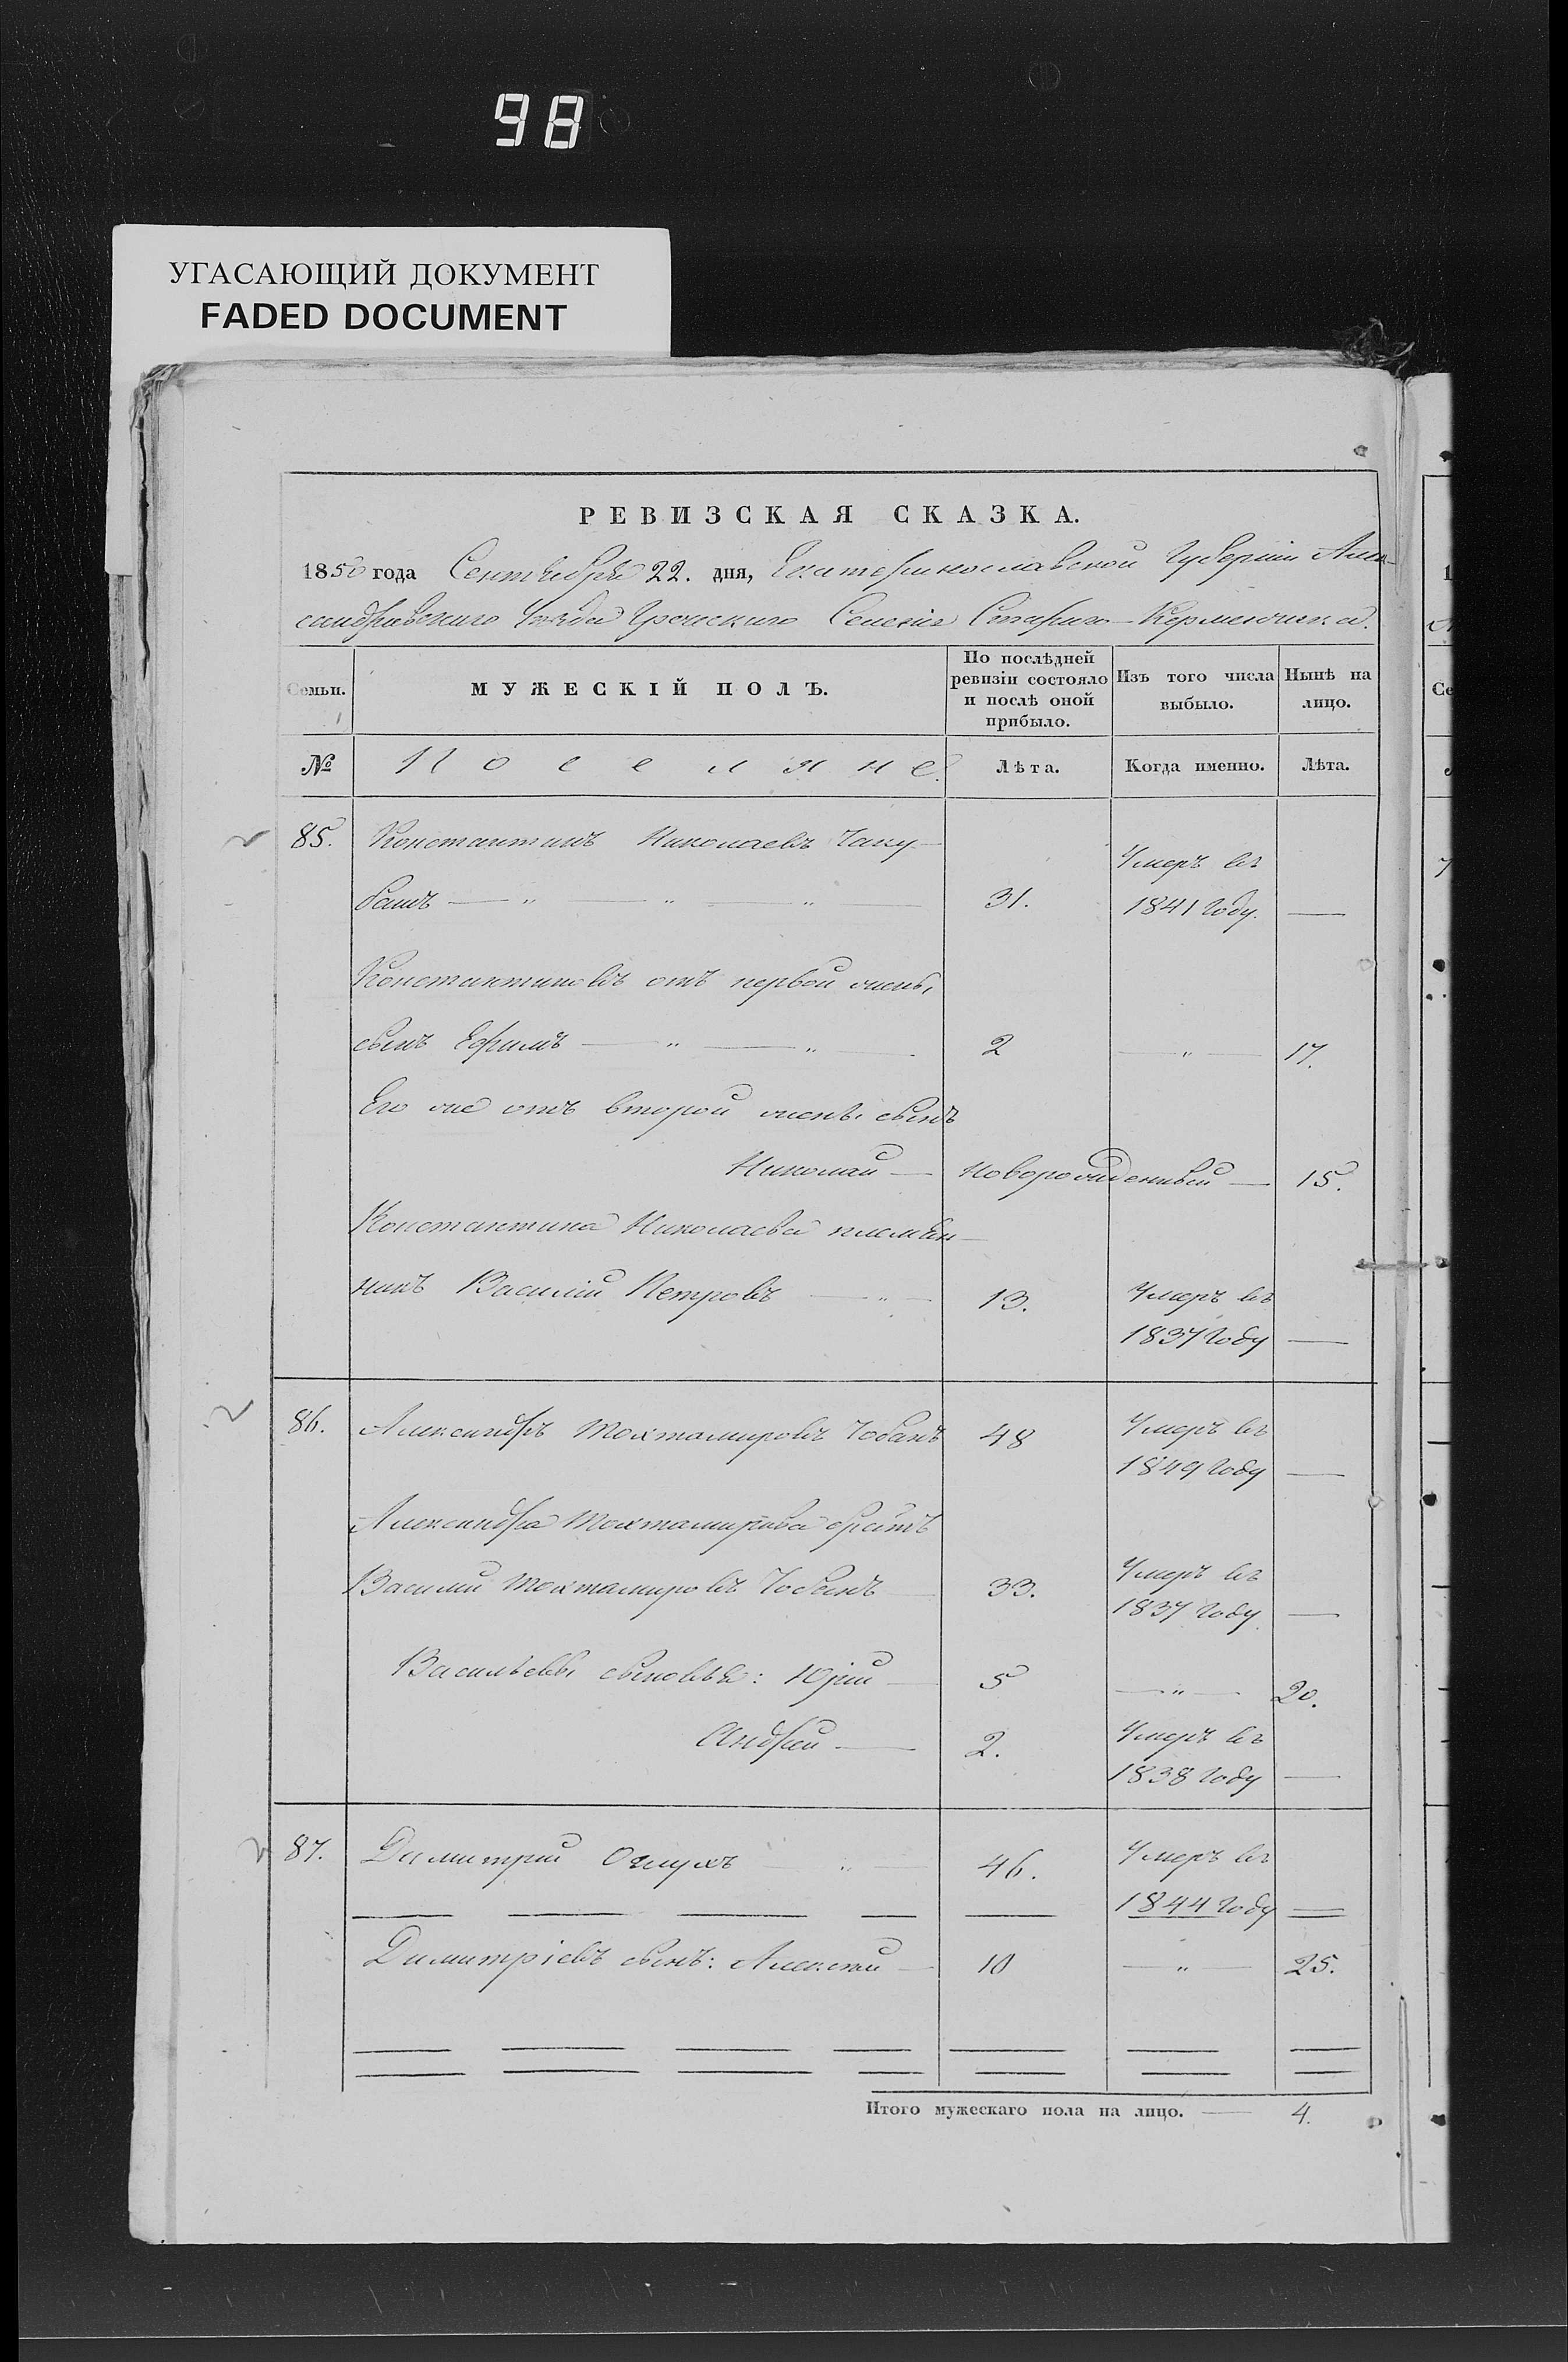 98
УГАСАЮЩИЙ ДОКУМЕНТ
FADED DOCUMENT
РЕВИЗСКАЯ СКАЗКА.
1850 года Сентября 22. дня, Екатеринославской Губернии Алек-
сандровскаго Уѣзда Греческаго Селенія Стараго-Керменчика.
Семьи. МУЖЕСКІЙ ПОЛЪ. По послѣдней ревизіи состояло и послѣ оной прибыло. Изъ того числа выбыло. Нынѣ на лицо.
№ Поселяне. Лѣта. Когда именно. Лѣта.
85. Константинъ Николаевъ Чаку-
башъ 31. Умеръ въ 1841 Году. —
Константиновъ отъ первой жены,
сынъ Ефимъ 2 — " — 17.
Его же отъ второй жены сынъ
Николай — Новорожденный — 15.
Константина Николаева племян-
никъ Василій Петровъ 13. Умеръ въ 1837 Году —
86. Александръ Тохтамировъ Чобанъ 48 Умеръ въ 1849 Году —
Александра Тохтамирова братъ
Василий Тохтамировъ Чобанъ 33. Умеръ въ 1837 Году —
Васильевы сыновья: Юрій 5 — " — 20.
Андрей — 2. Умеръ въ 1838 Году —
87. Димитрий 46. Умеръ въ 1844 Году —
Димитріевъ сынъ: Алексей — 10 — " — 25.
Итого мужескаго пола на лицо. — 4.